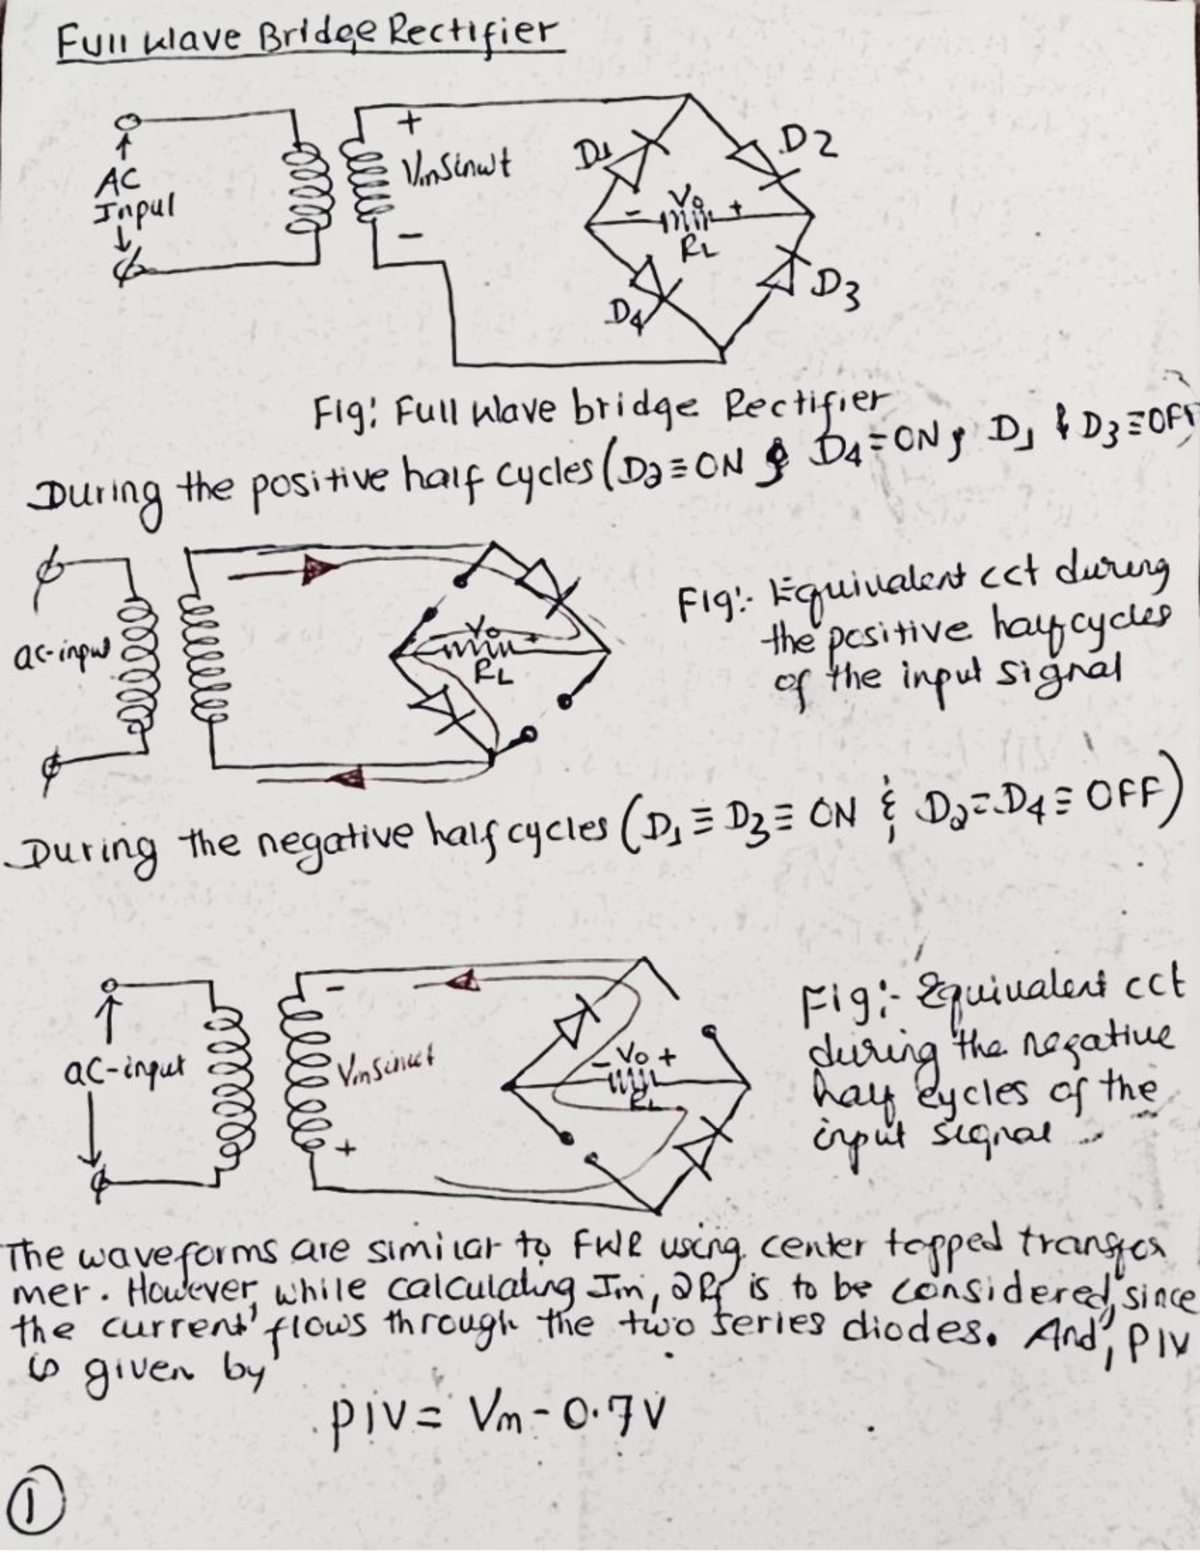 Full Wave Bridge Rectifier
AC
Input
+
Vm Sinwt
-
D1
D2
- Vo +
RL
D3
D4
Fig: Full Wave bridge Rectifier
During the positive half cycles (D2 ≡ ON & D4 = ON, D1 & D3 ≡ OFF
ac-input
Vo
+
RL
Fig:- Equivalent cct during
the positive half cycles
of the input signal
During the negative half cycles (D1 ≡ D3 ≡ ON & D2 = D4 ≡ OFF)
ac-input
-
Vm sinwt
+
- Vo +
RL
Fig:- Equivalent cct
during the negative
half cycles of the
input signal
The waveforms are similar to FWR using center tapped transfor
mer. However, while calculating Im, 2Rf is to be considered, since
the current flows through the two series diodes. And, PIV
is given by
PIV = Vm - 0.7V
1